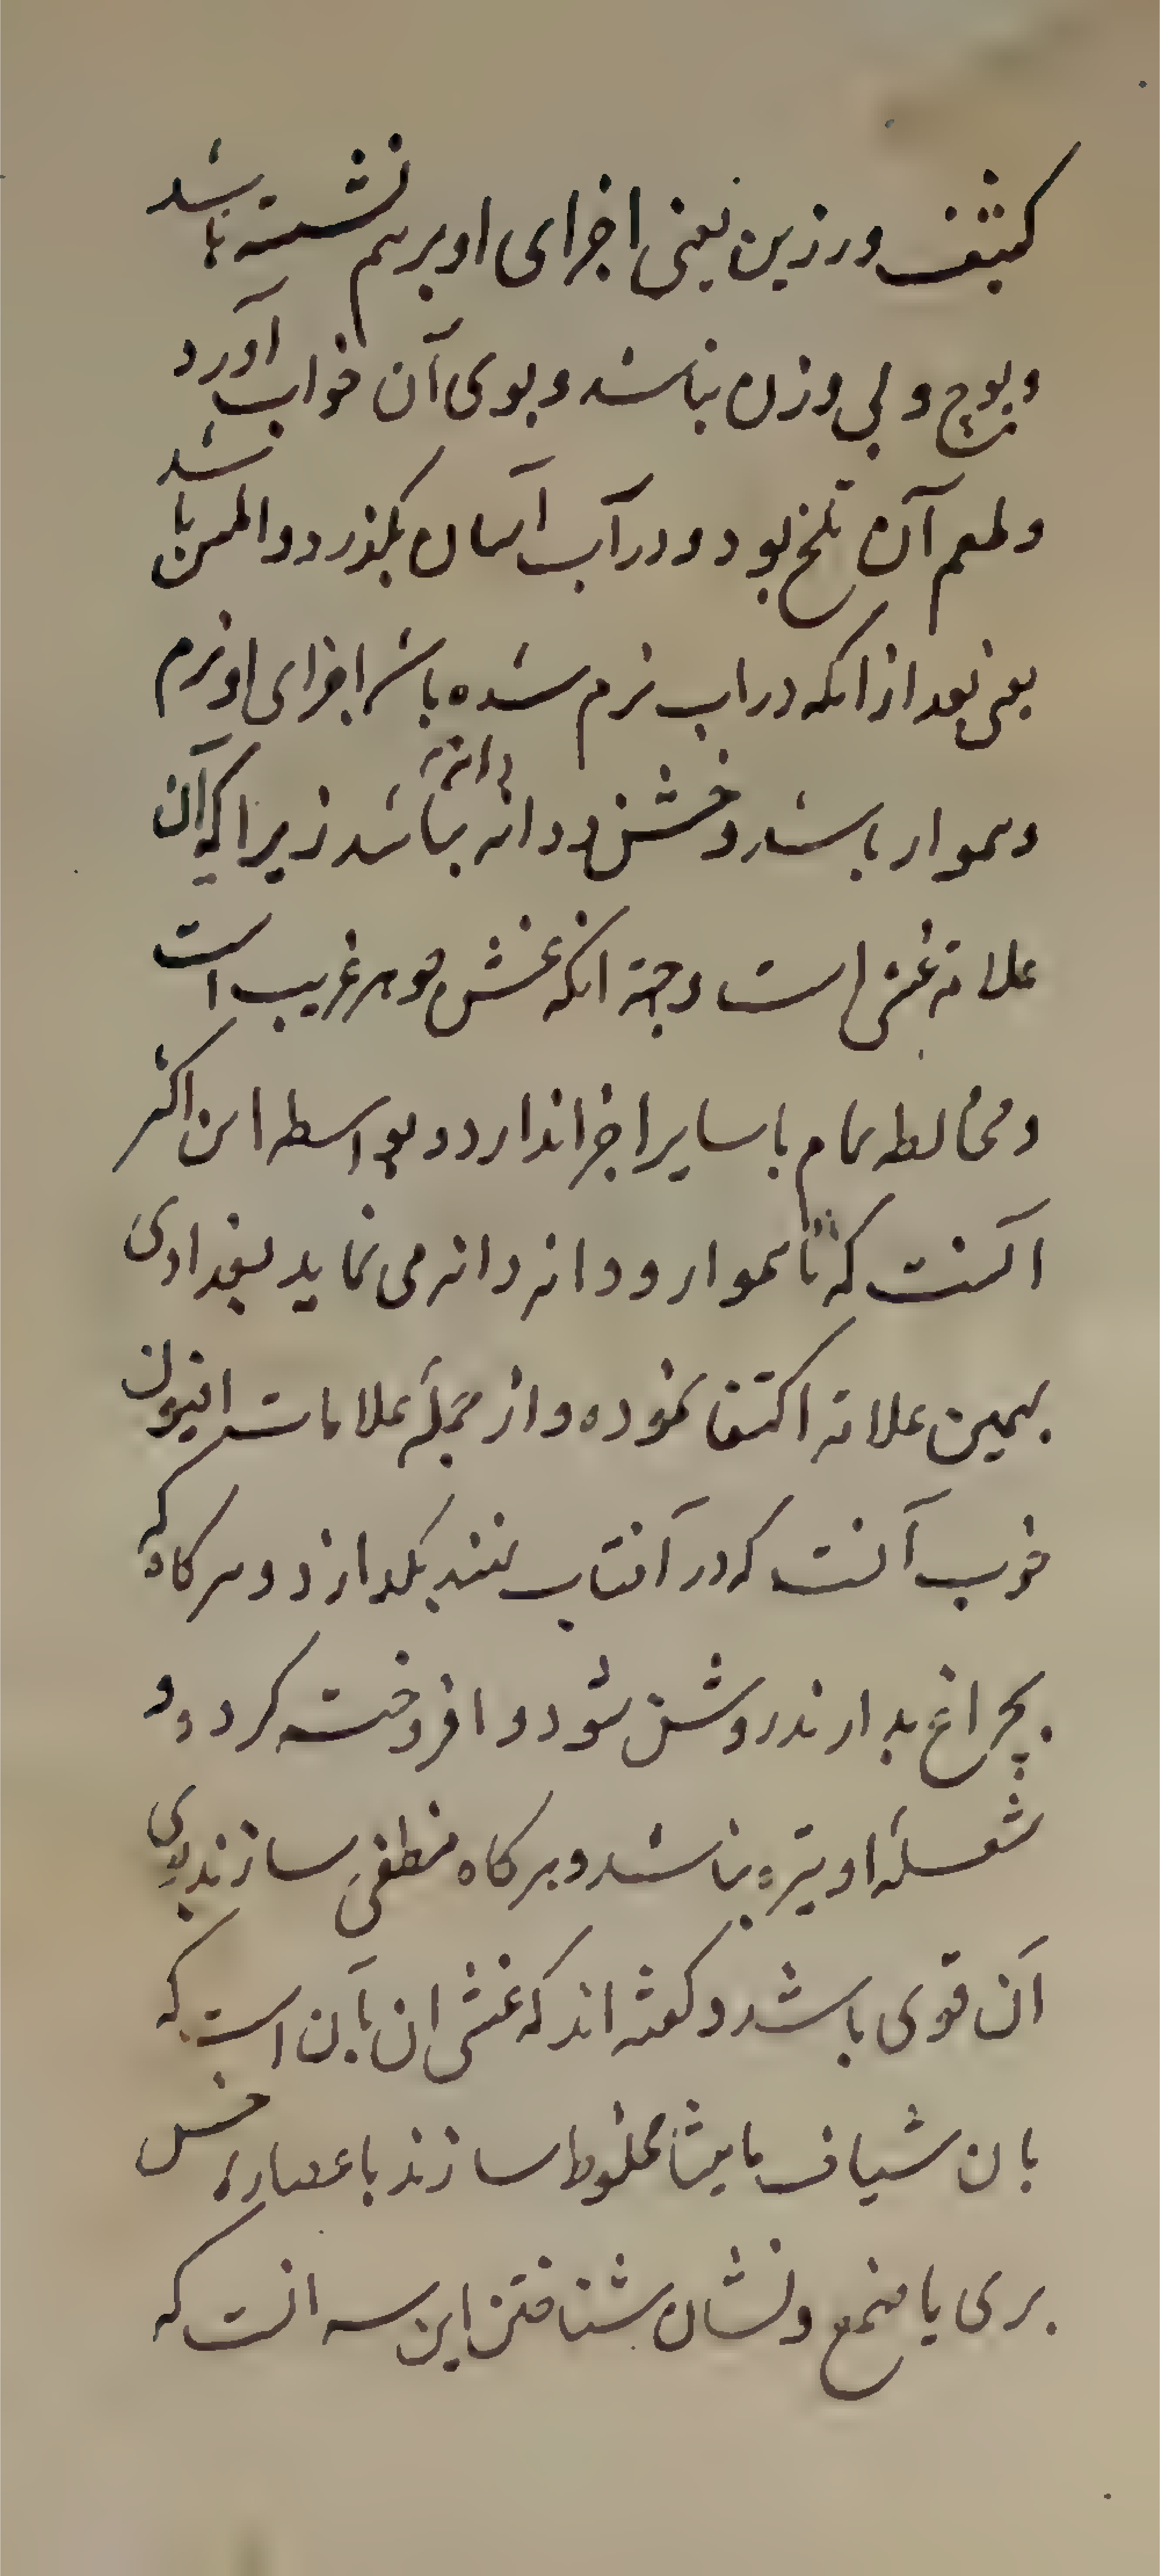 کثیف و رزین یعنی اجزای او بر هم نشسته باشد
و پوچ و بی وزن نباشد و بوی آن خواب آورد
و طعم آن تلخ بود و در آب آسان بگذرد و املس باشد
یعنی بعد از انکه در اب نرم شده باشد اجزای او نرم
و هموار باشد و خشن و دانه دانه نباشد زیرا که آن
علامة غش است و جهة انکه غش جوهر غریب است
و مخالطه تمام با سایر اجزا ندارد و بواسطه این اکثر
انست که ناهموار و دانه دانه می نماید بغدادی
بهمین علامة اکتفا نموده و از جمله علامات افیون
خوب آنست که در آفتاب نهند بگدازد و هرگاه که
بچراغ بدارند روشن شود و افروخته گردد و
شعلهٔ او تیره نباشد و هرگاه منطفی سازند بوی
آن قوی باشد و گفته اند که غش ان بآن است که
بان شیاف مامیثا مخلوط سازند با عصارهٔ خس
بری یا صمغ و نشان شناختن این سه انست که